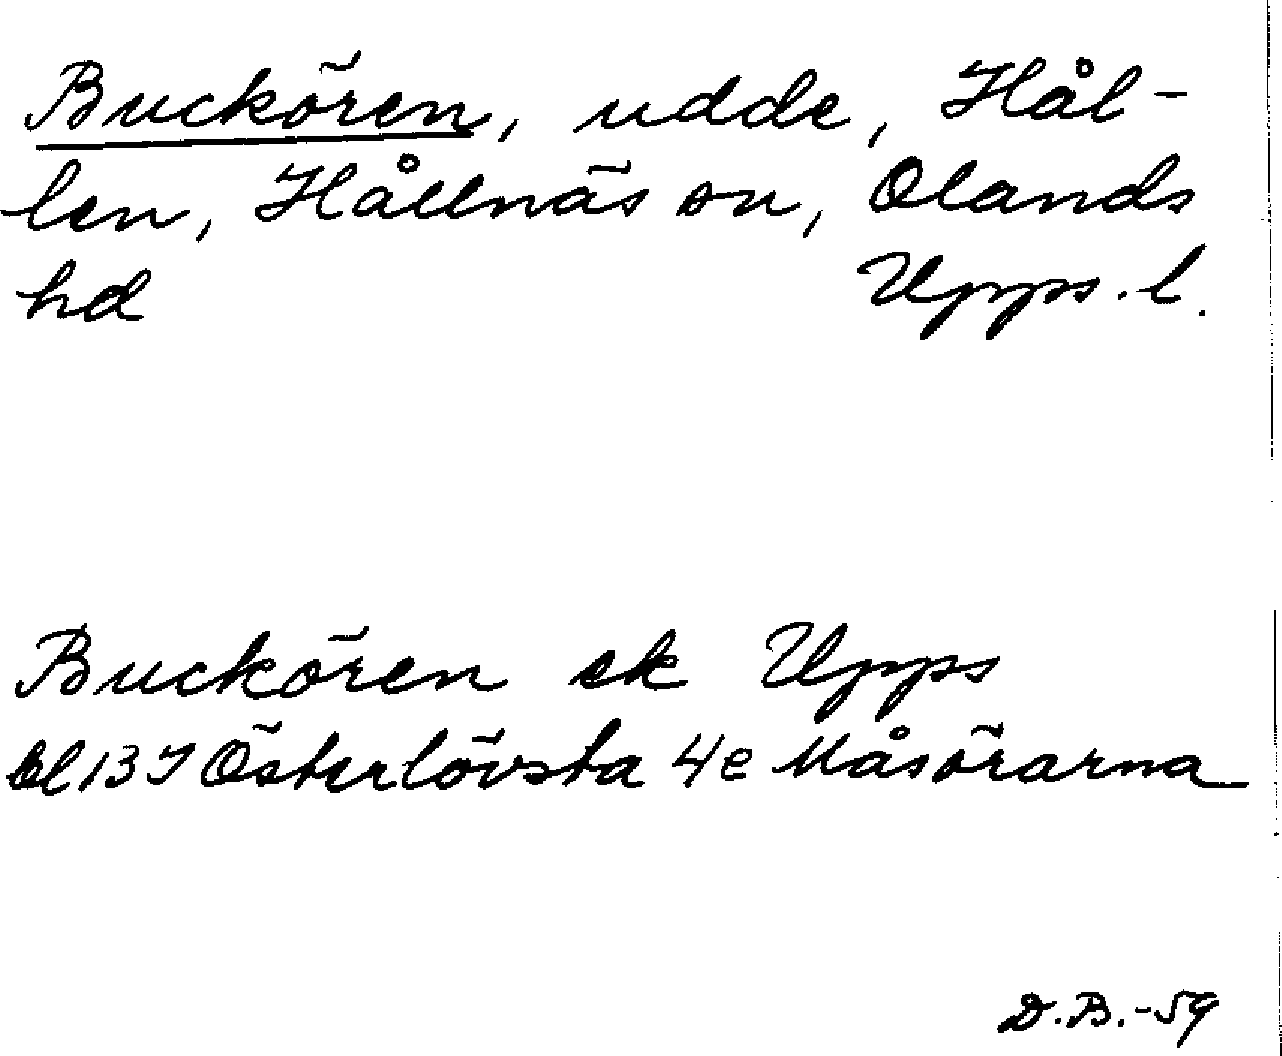 Buckören, udde, Hål-
len, Hållnäs sn, Olands
hd Upps. l.
Buckören ek Upps
bl 13 I Österlövsta 4e Måsörarna
D.B.-59